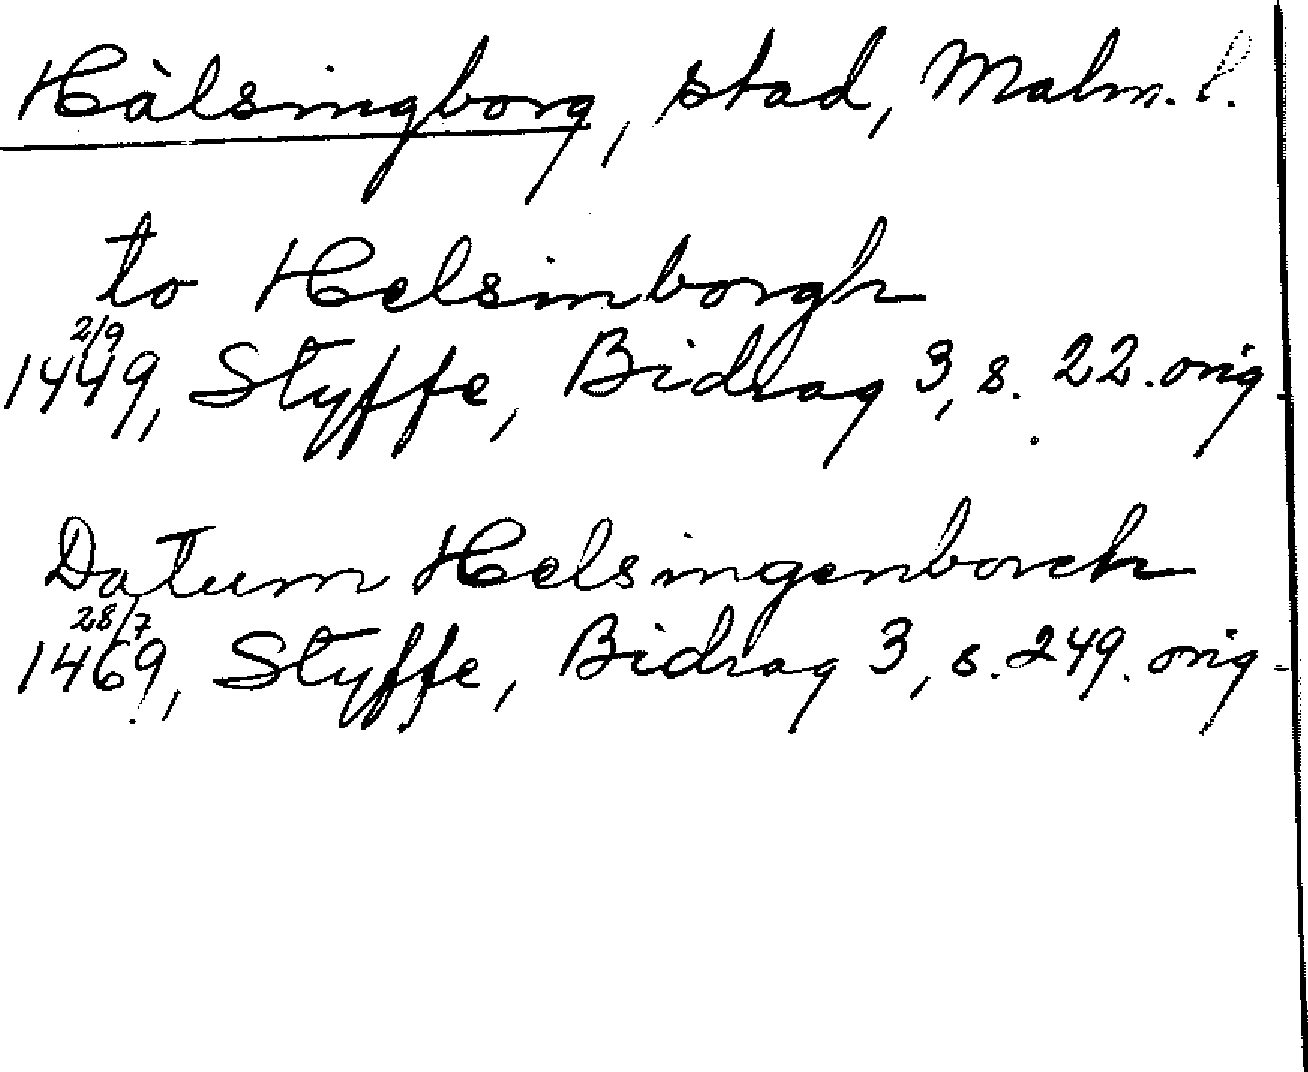 Hälsingborg, stad, Malm. l.
to Helsinborgh
2/9
1449, Styffe, Bidrag 3, s. 22. orig.
Datum Helsingenborch
28/7
1469, Styffe, Bidrag 3, s. 249. orig.